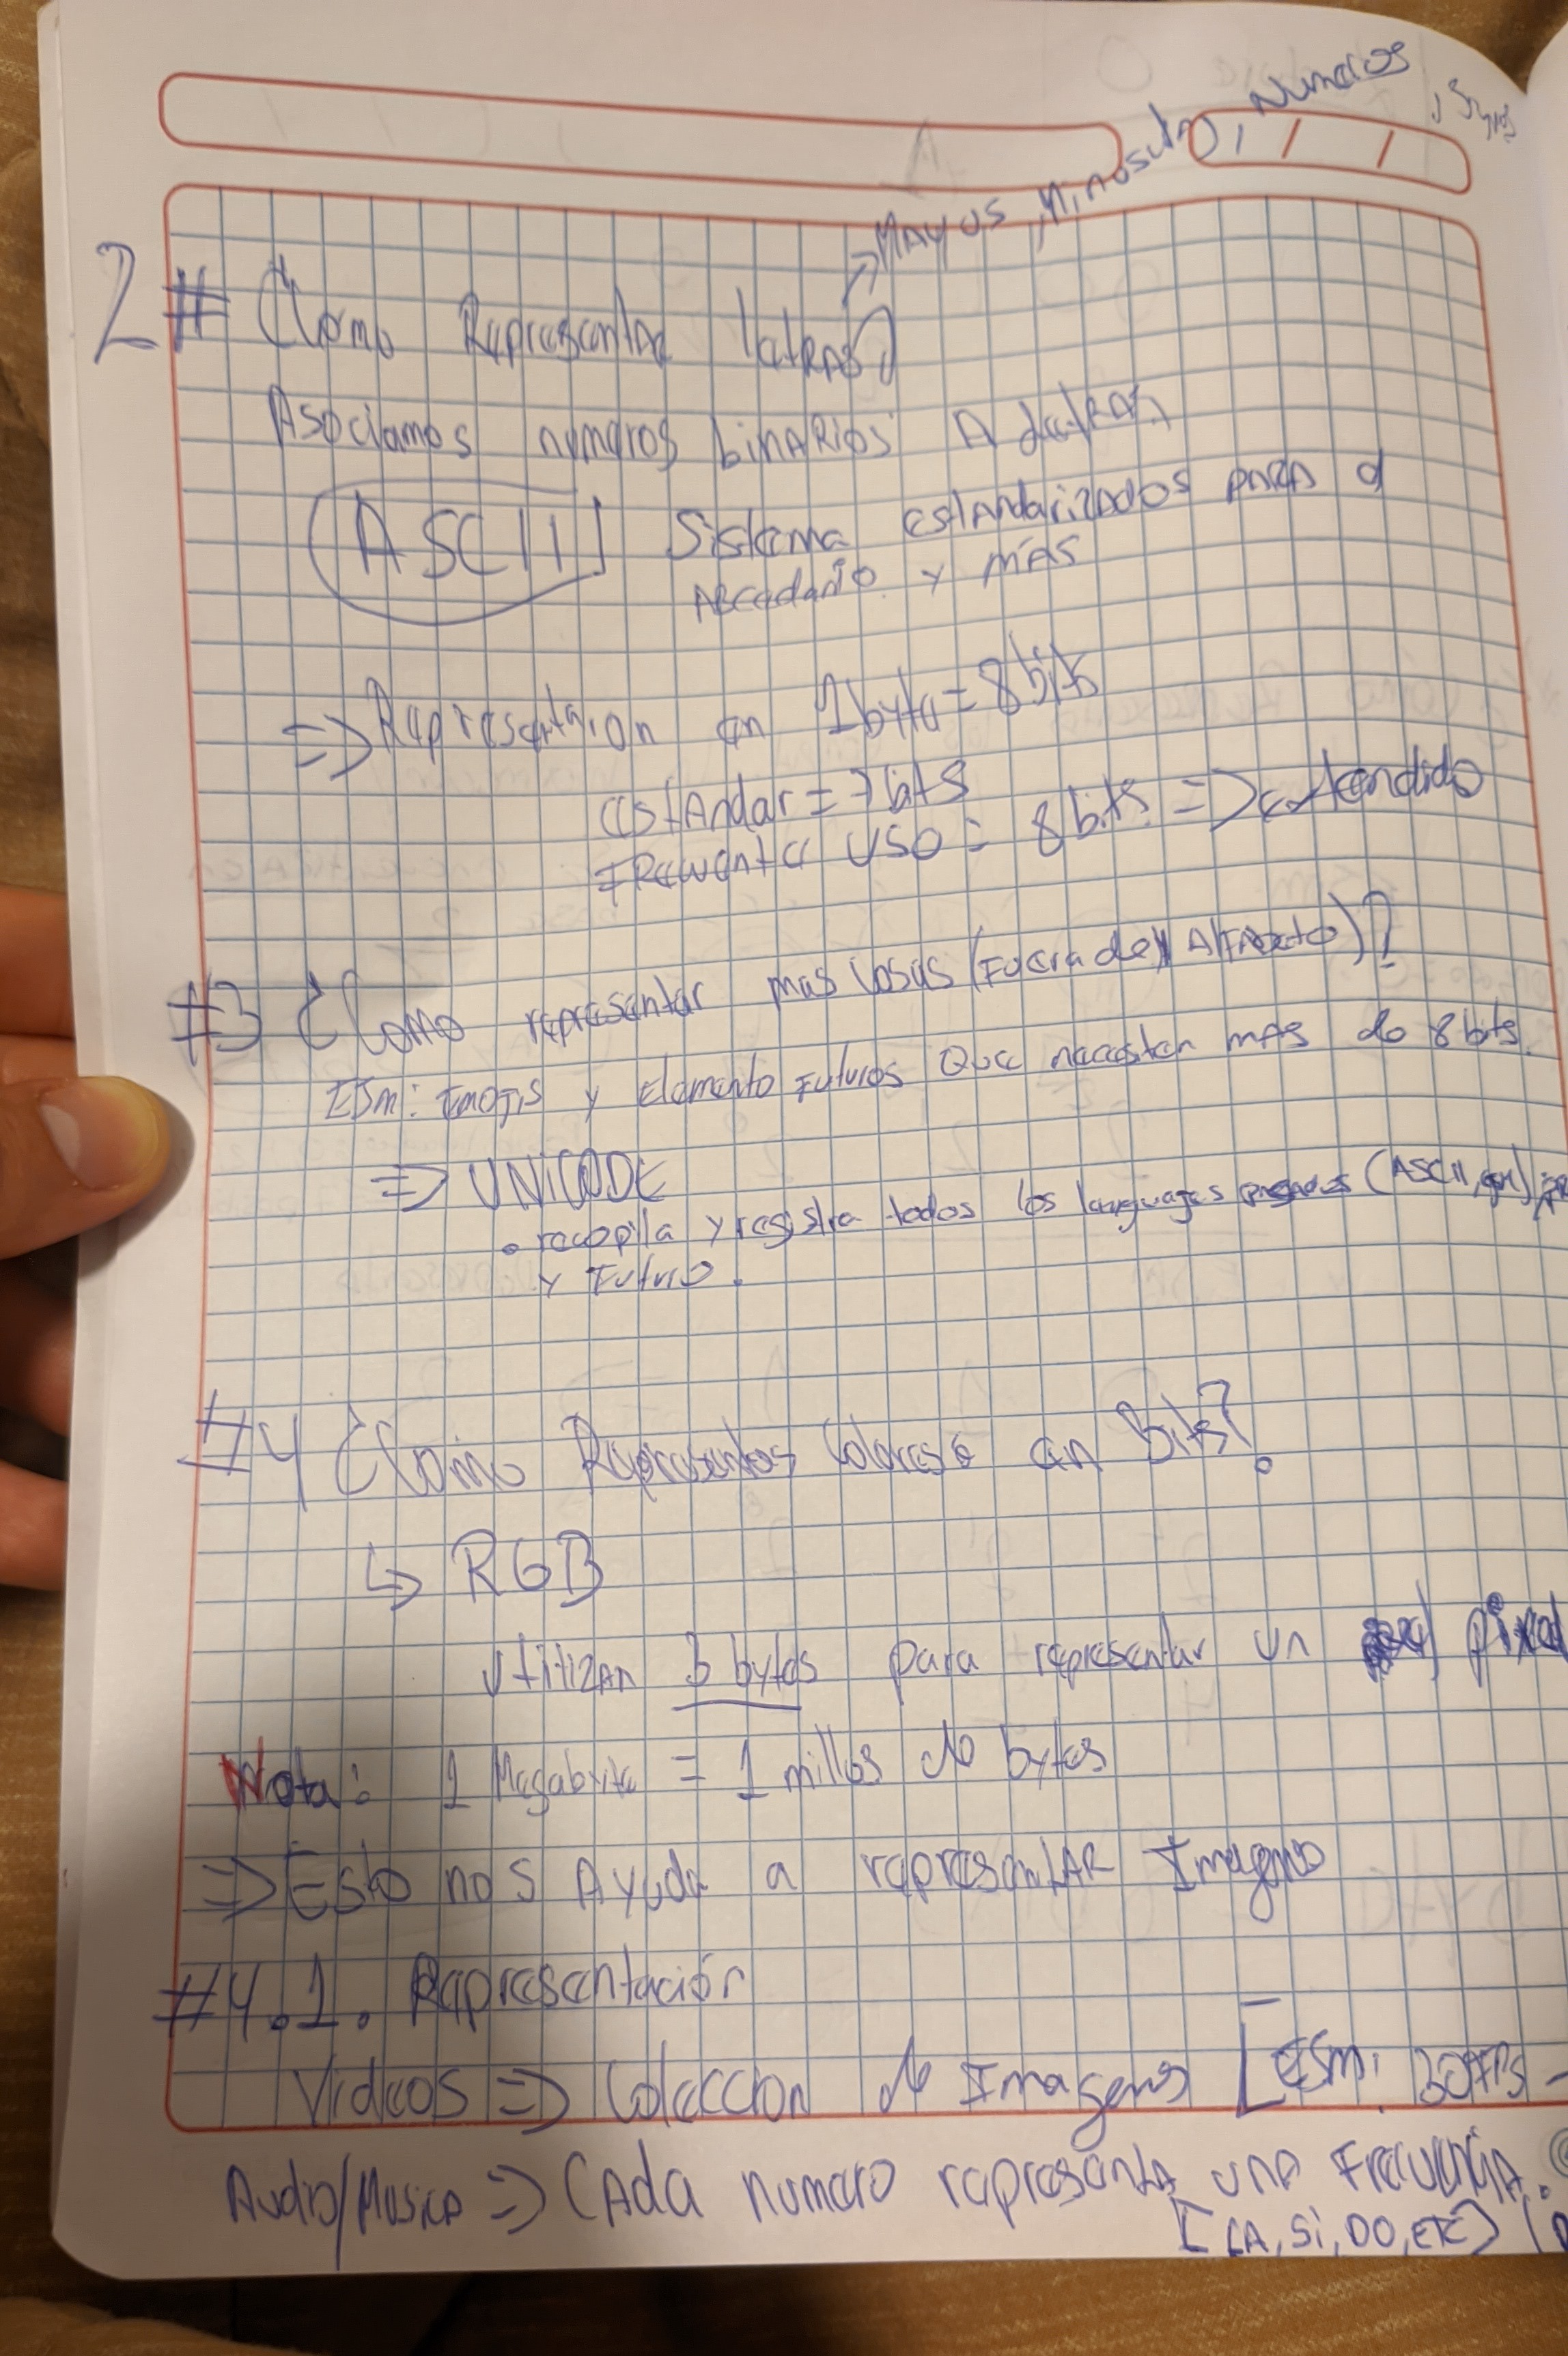 → Mayus, Minoscula, Numeros,
2# ¿Como Representar letras?
Asociamos numeros binarios A letras
ASCII Sistema estandarizados para el
Abecedario y más
⇒ Representacion en 1 byte = 8 bits
estandar = 7 bits
Frecuente uso = 8 bits ⇒ extendido
#3 ¿Como representar mas cosas (Fuera del Alfabeto)?
EJm: Emojis y Elemento Futuros Que necesiten más de 8 bits.
⇒ UNICODE
• recopila y registra todos los lenguages (ASCII,
y Futuro.
#4 ¿Como Representos Colores en Bits?
↳ RGB
Utilizan 3 bytes para representar un pixel
Nota: 1 Megabyte = 1 millos de bytes
⇒ Esto nos Ayuda a representar Imagenes
#4.1. Representación
Videos ⇒ Coleccion de Imagenes [EJm: 30FPS -
Audio/Musica ⇒ Cada numero representa una Frecuencia.
[LA, Si, DO, ETC]